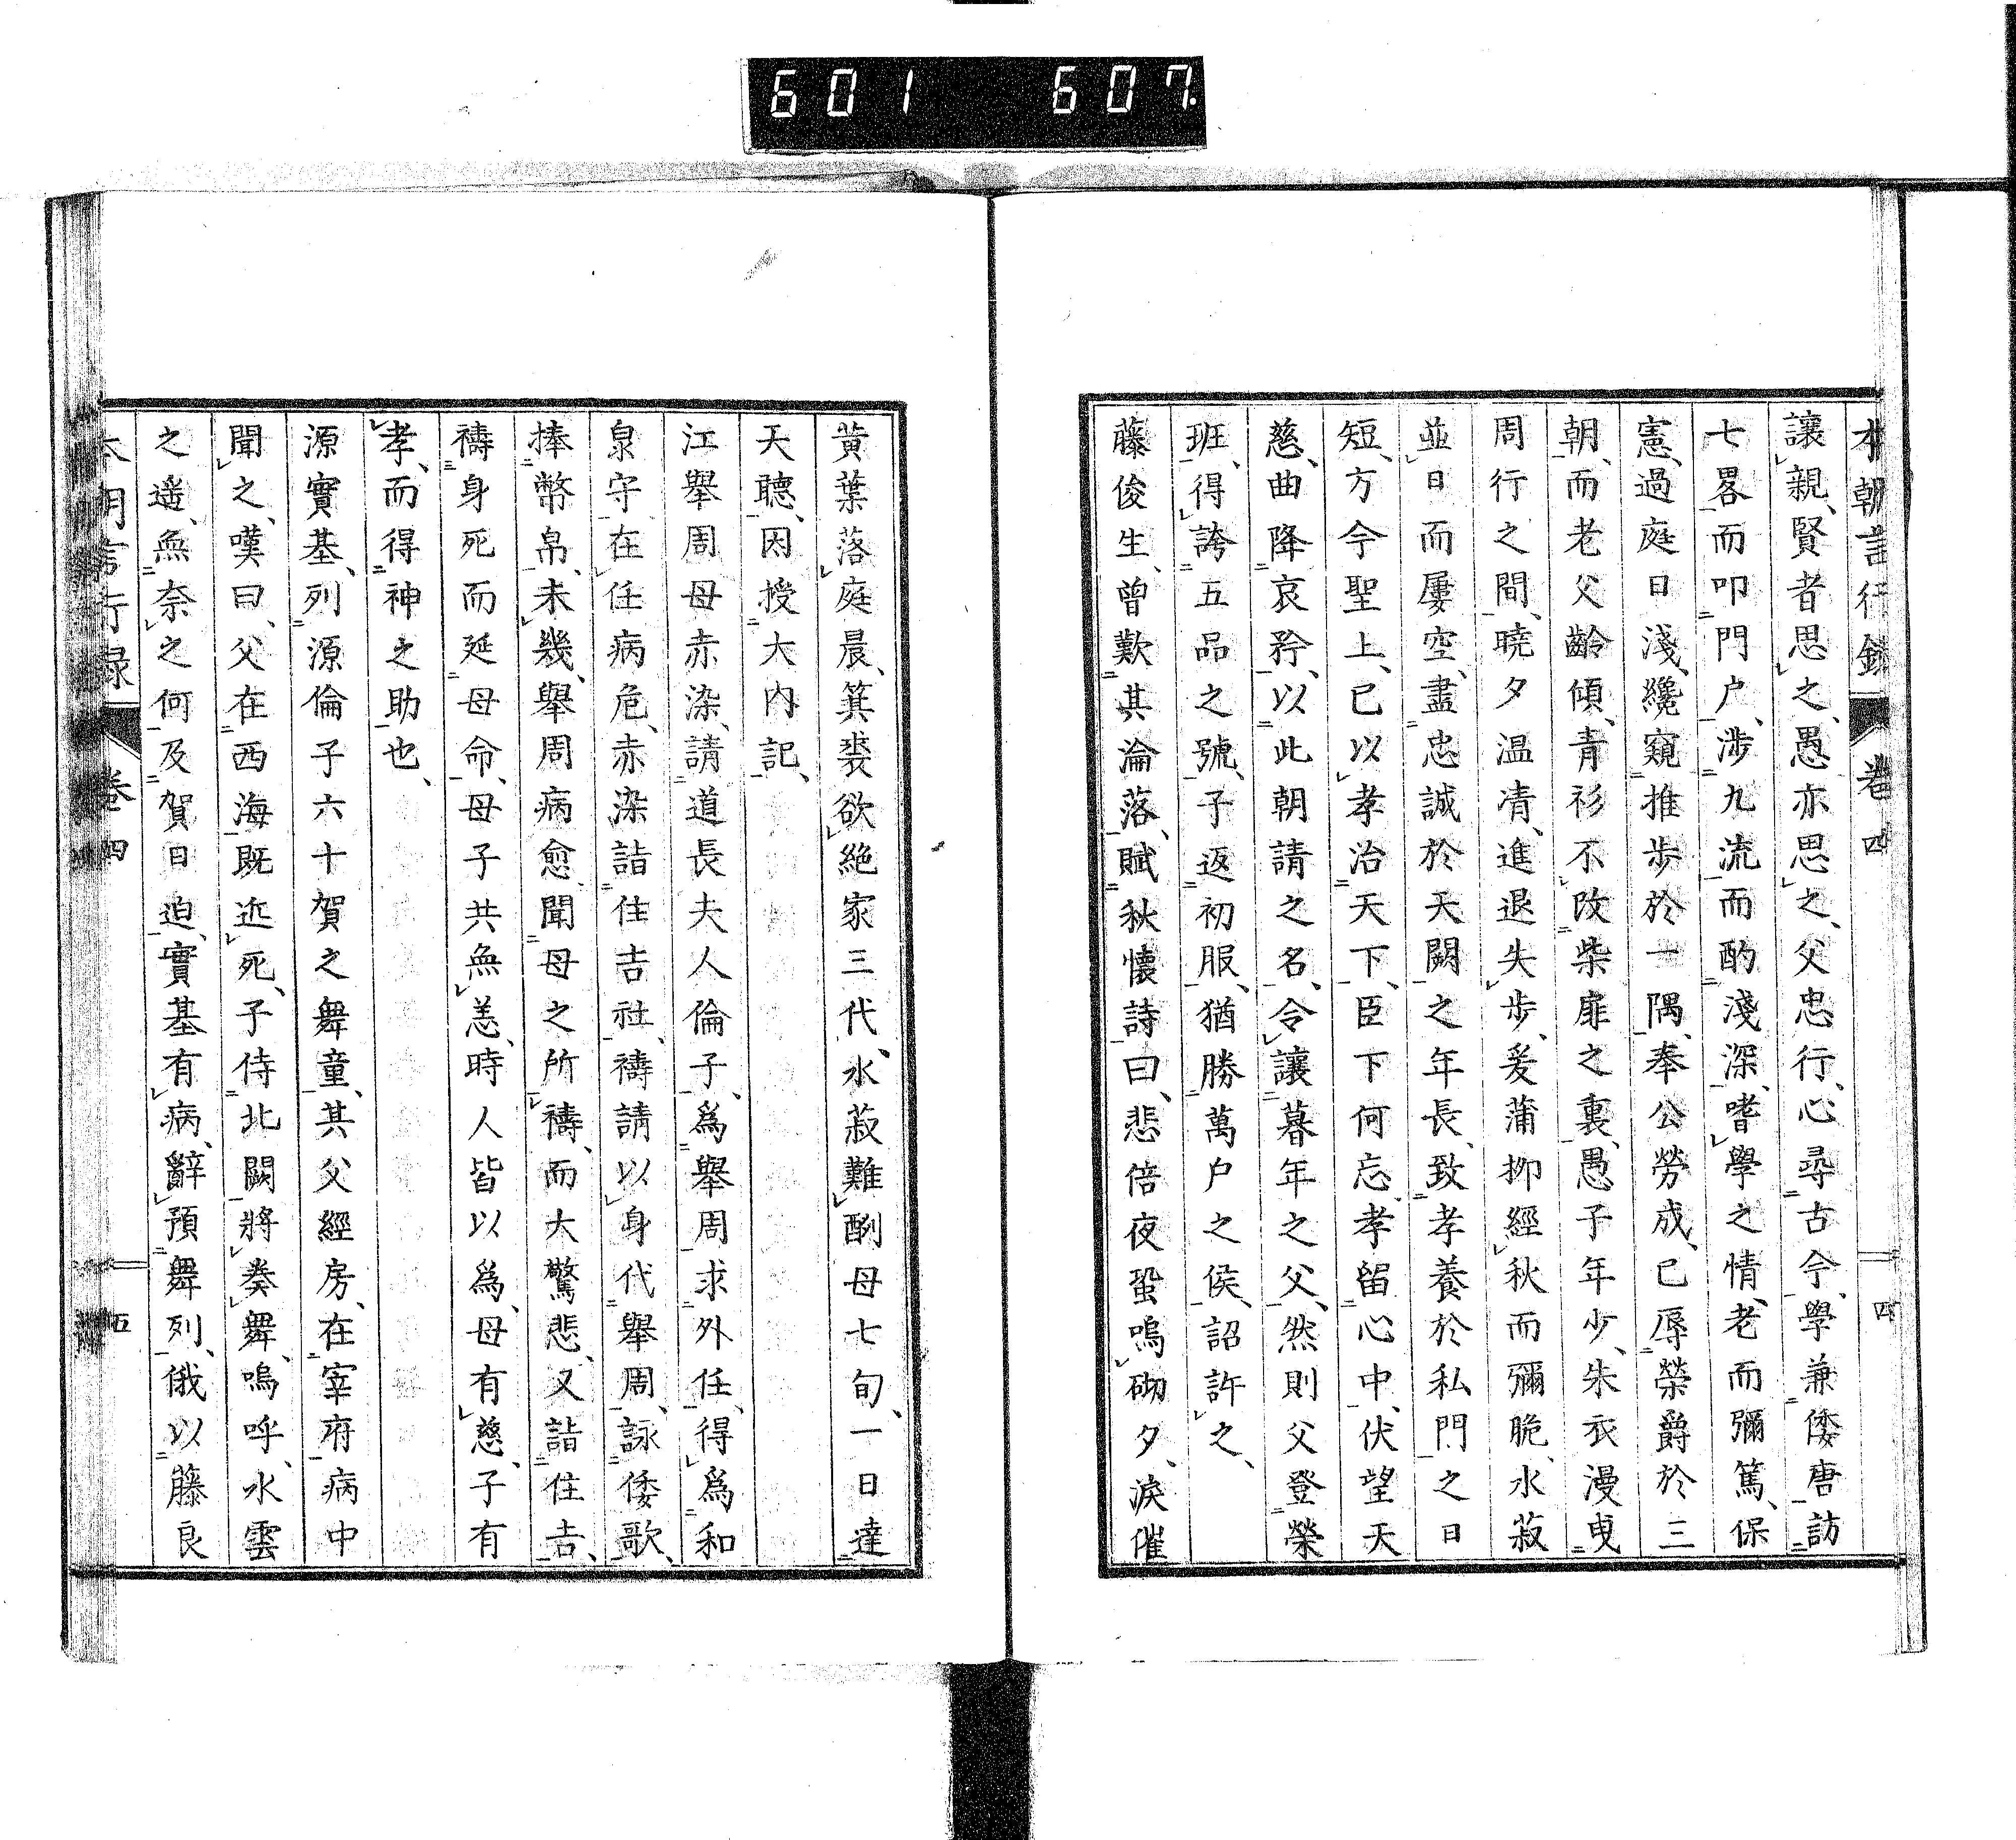 601 607.
本朝言行錄 卷四 四
讓親、賢者思之、愚亦思之、父忠行、心尋古今、學兼倭唐、訪
七畧而叩門户、渉九流而酌淺深、嗜學之情、老而彌篤、保
憲、過庭日淺、纔窺推歩於一隅、奉公勞成、已辱榮爵於三
朝、而老父齡傾、青衫不改柴扉之裏、愚子年少、朱衣漫曳
周行之間、曉夕温凊、進退失歩、爰蒲抑經秋而彌脆、水菽
並日而屢空、盡忠誠於天闕之年長、致孝養於私門之日
短、方今聖上、已以孝治天下、臣下何忘孝留心中、伏望天
慈、曲降哀矜、以此朝請之名、令讓暮年之父、然則父登榮
班、得誇五品之號、子返初服、猶勝萬户之侯、詔許之、
藤俊生、曾歎其淪落、賦秋懷詩曰、悲倍夜蛩鳴砌夕、淚催
黄葉落庭晨、箕裘欲絶家三代、水菽難酬母七旬、一日達
天聽、因授大内記、
江舉周母赤染、請道長夫人倫子、爲舉周求外任、得爲和
泉守、在任病危、赤染詣住吉社、禱請以身代舉周、詠倭歌、
捧幣帛、未幾、舉周病愈、聞母之所禱、而大驚悲、又詣住吉、
禱身死而延母命、母子共無恙、時人皆以爲、母有慈、子有
孝、而得神之助也、
源實基、列源倫子六十賀之舞童、其父經房、在宰府病中
聞之、嘆曰、父在西海既近死、子侍北闕將奏舞、嗚呼、水雲
之遥、無奈之何、及賀日迫、實基有病、辭預舞列、俄以藤良
本朝言行録 卷四 五